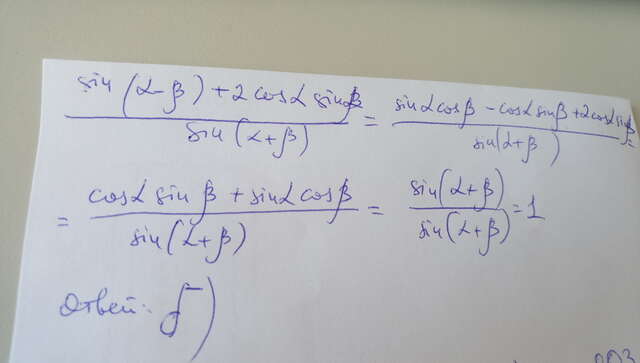 sin(α-β)+2cosα sinβ / sin(α+β) = sinα cosβ - cosα sinβ + 2cosα sinβ / sin(α+β) =
= cosα sinβ + sinα cosβ / sin(α+β) = sin(α+β) / sin(α+β) = 1
Ответ: б)